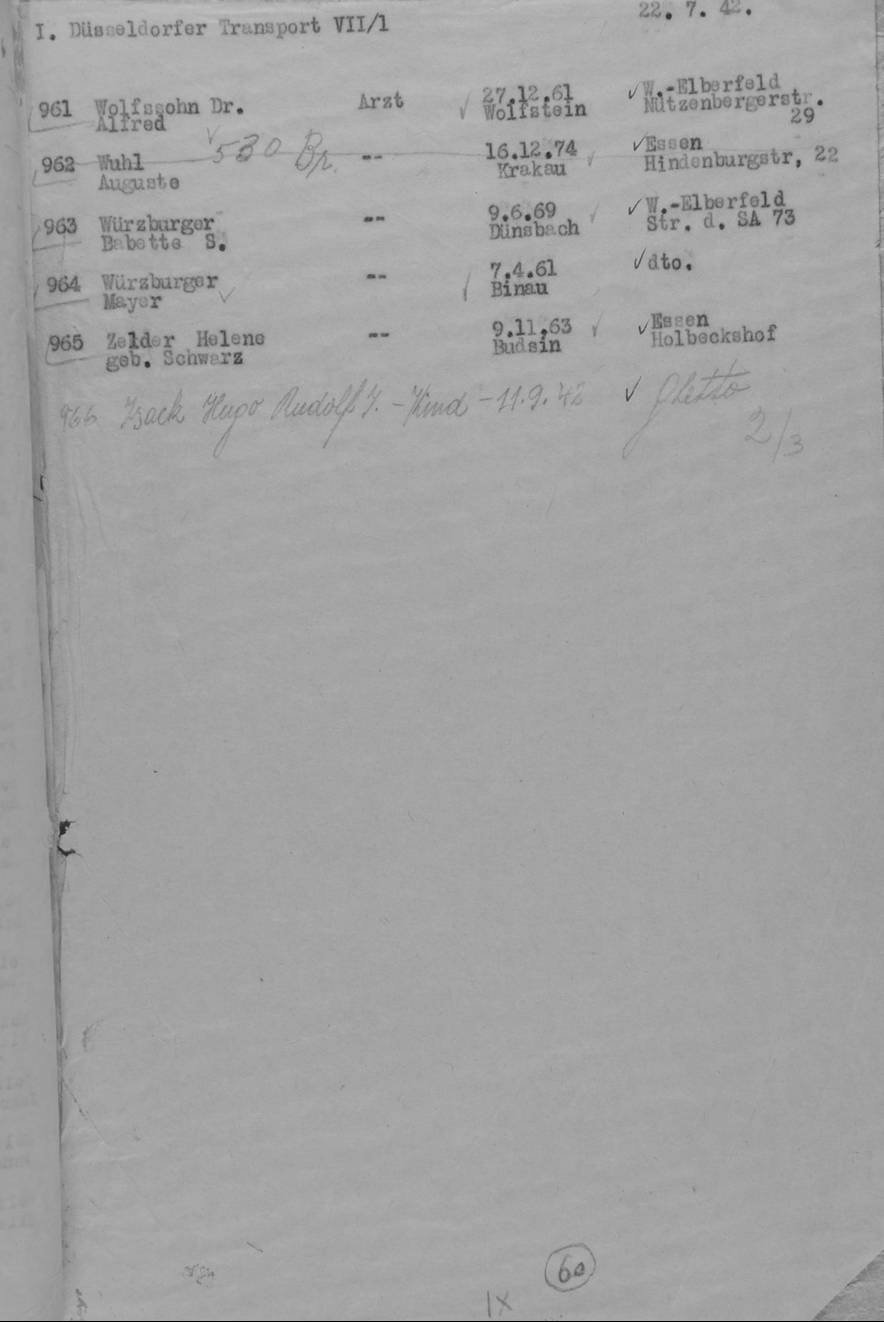 I. Düsseldorfer Transport VII/1 22. 7. 42.
961 Wolfssohn Dr. Arzt ✓ 27.12.61 ✓ W.-Elberfeld
Alfred Wolfstein Nützenbergerstr.
29
962 Wuhl 530 Br. -- 16.12.74 ✓ Essen
Auguste Krakau ✓ Hindenburgstr, 22
963 Würzburger -- 9.6.69 ✓ W.-Elberfeld
Babette S. Dünsbach Str. d. SA 73
964 Würzburger -- 7.4.61 ✓ dto.
Mayer ✓ Binau
965 Zelder Helene -- 9.11.63 ✓ Essen
geb. Schwarz Budsin Holbeckshof
966 Isack Hugo Rudolf J. - Kind - 11.9.42 ✓ Ghetto
2/3
60
IX